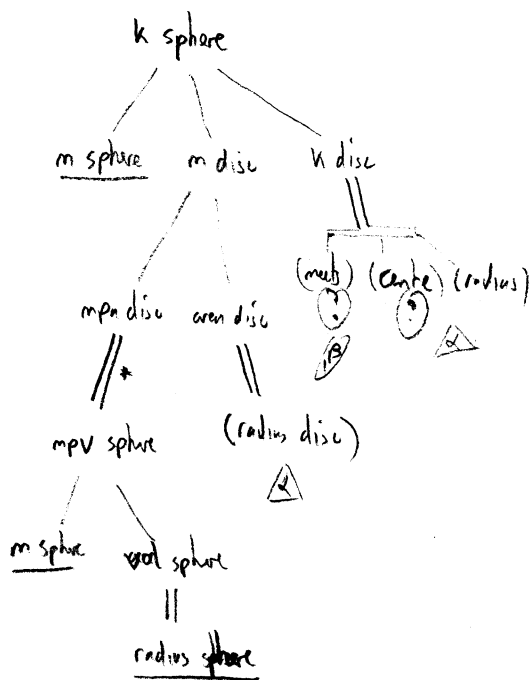 k sphere
m sphere m disc k disc
(meets) (centre) (radius)
? ?
mpa disc area disc
β α
*
mpv sphere (radius disc)
α
m sphere vol sphere
radius sphere